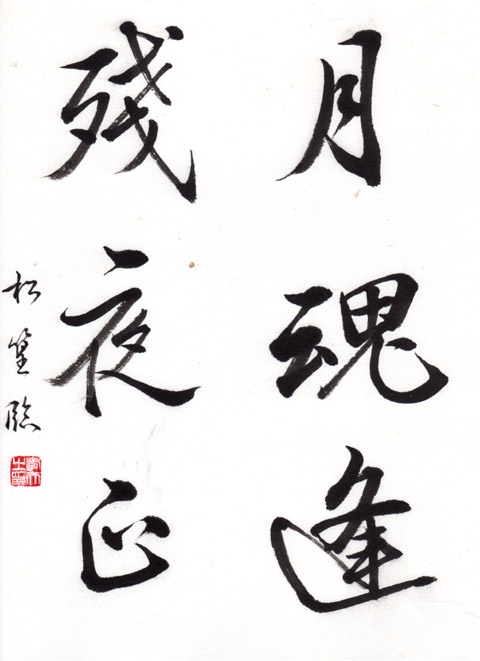 月魂逢
残夜正
松篁臨